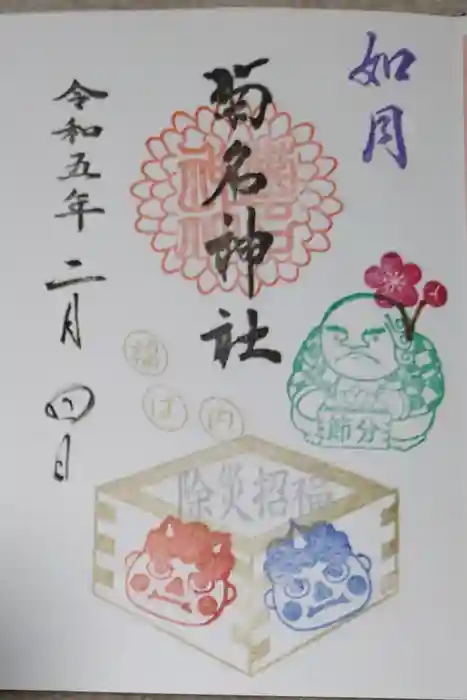 如月
菊名神社
令和五年 二月 四日
節分
福は内
除災招福